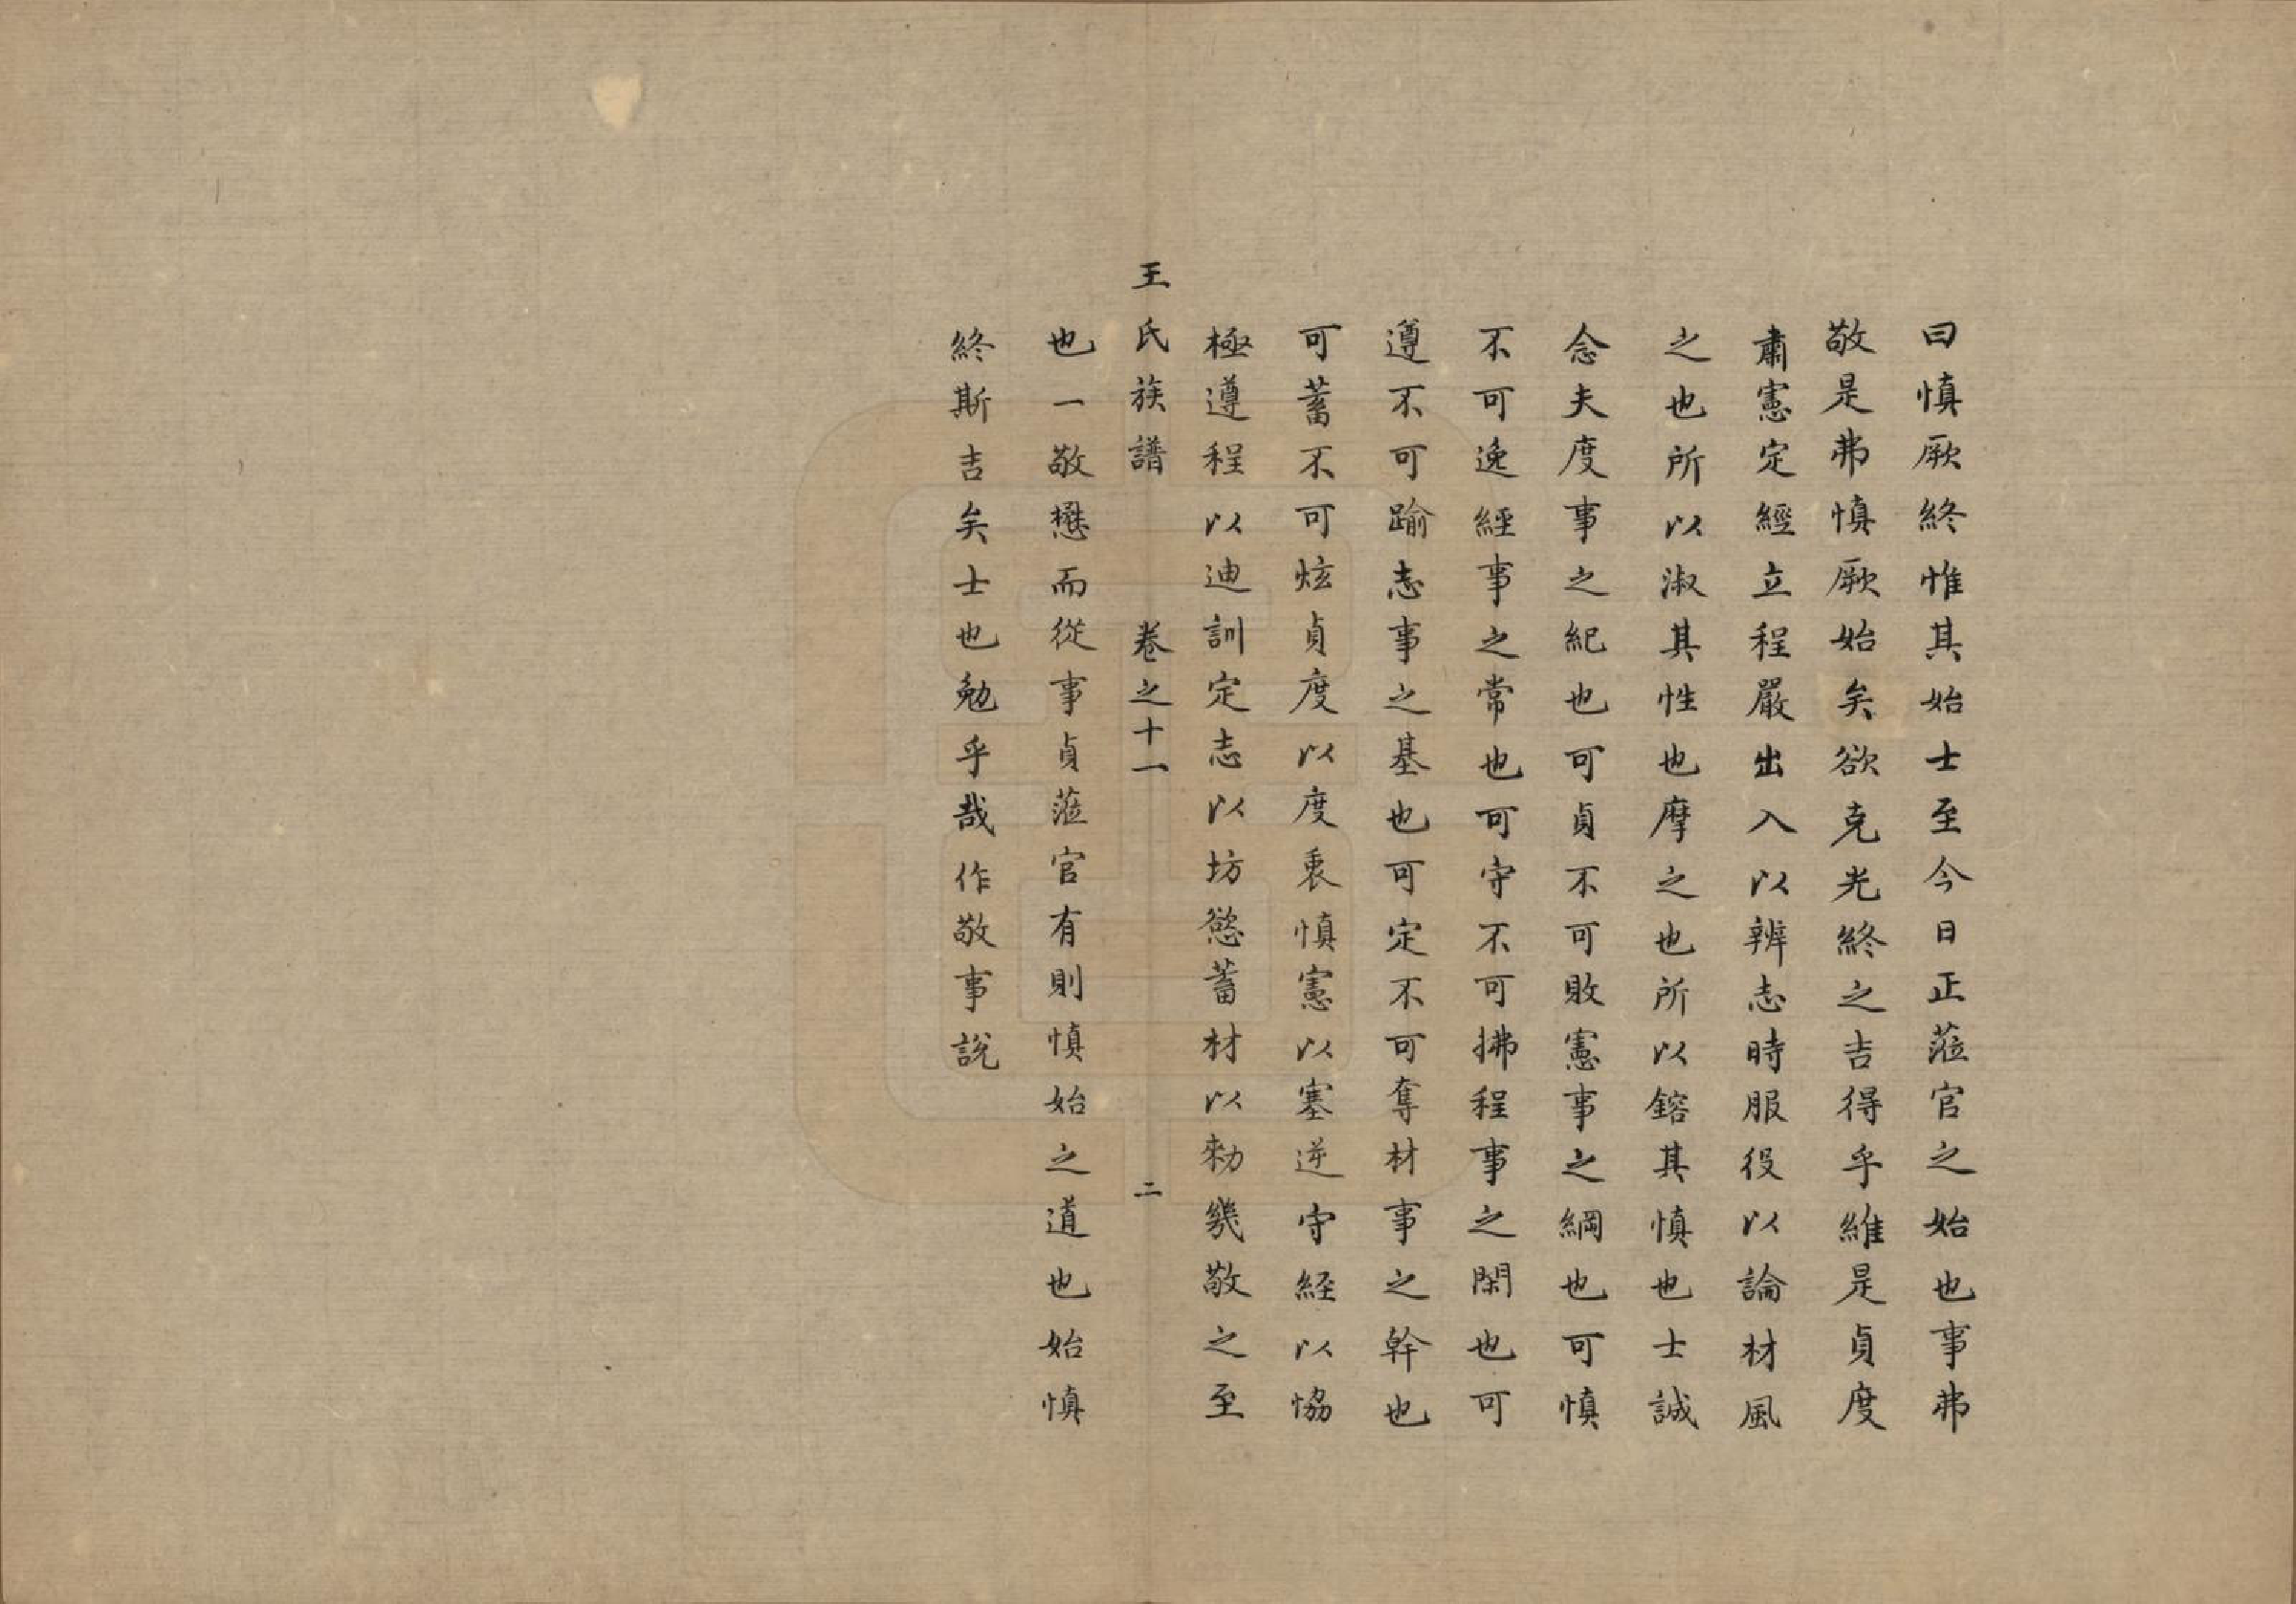 曰慎厥終惟其始士至今日正蒞官之始也事弗
敬是弗慎厥始矣欲克光終之吉得乎維是貞度
肅憲定經立程嚴出入以辨志時服役以論材風
之也所以淑其性也摩之也所以鎔其慎也士誠
念夫度事之紀也可貞不可敗憲事之綱也可慎
不可逸經事之常也可守不可拂程事之閑也可
遵不可踰志事之基也可定不可奪材事之幹也
可蓄不可炫貞度以度衷慎憲以塞逆守経以協
極遵程以迪訓定志以坊慾蓄材以勑幾敬之至
王氏族譜 卷之十一 二
也一敬懋而從事貞蒞官有則慎始之道也始慎
終斯吉矣士也勉乎哉作敬事說